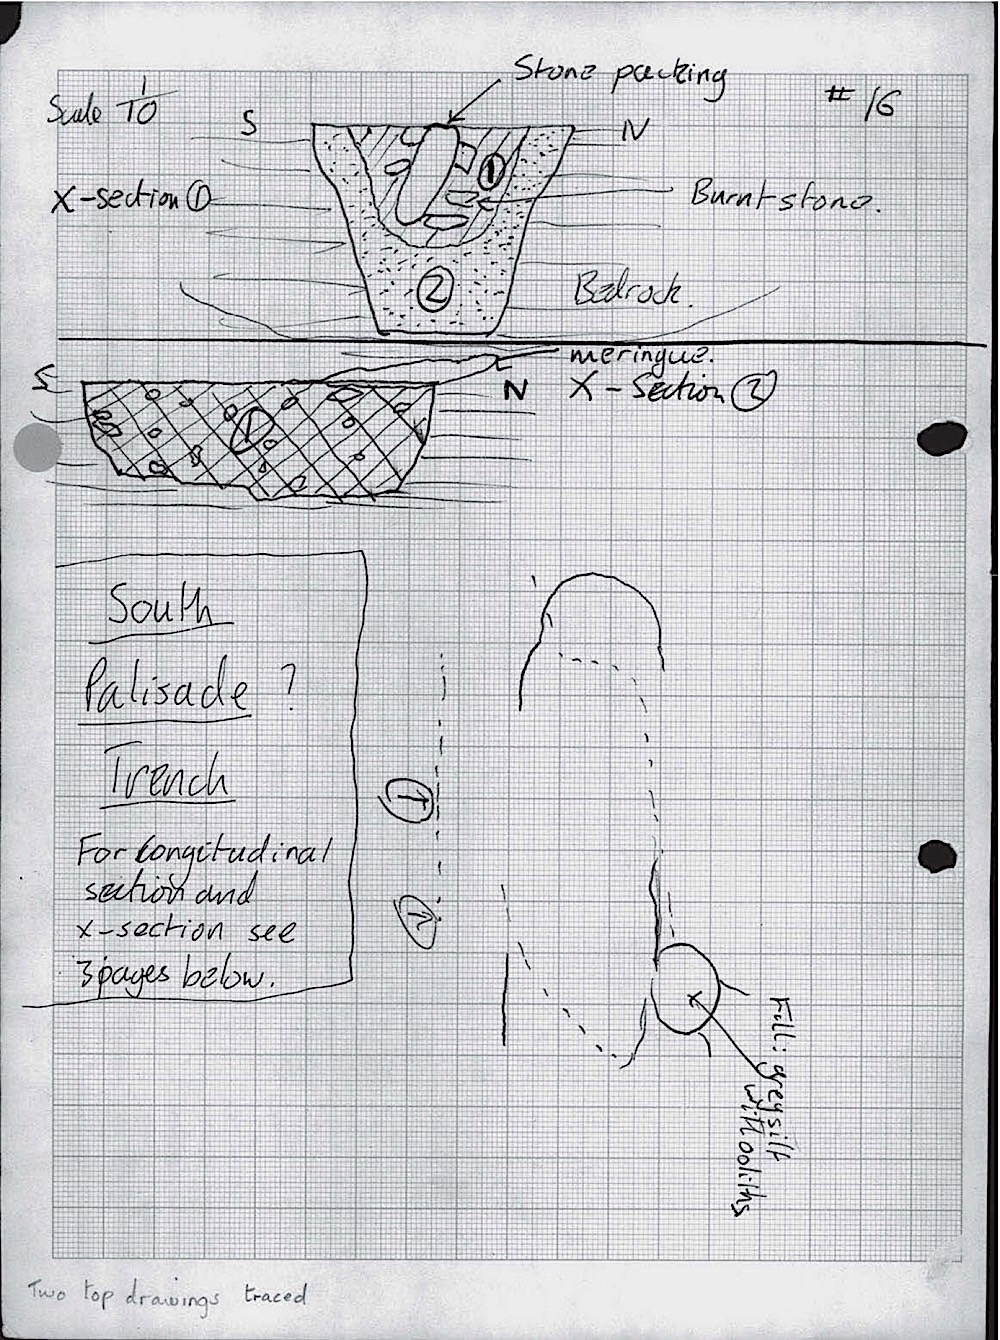 Stone packing
Scale 1/10
# 16
S
N
①
X-section ①
Burnt stone.
②
Bedrock.
meringue.
S
N
X-Section ②
①
South
Palisade ?
Trench
①
For longitudinal
section and
x-section see
3 pages below.
②
Fill: grey silt
with ooliths
Two top drawings traced